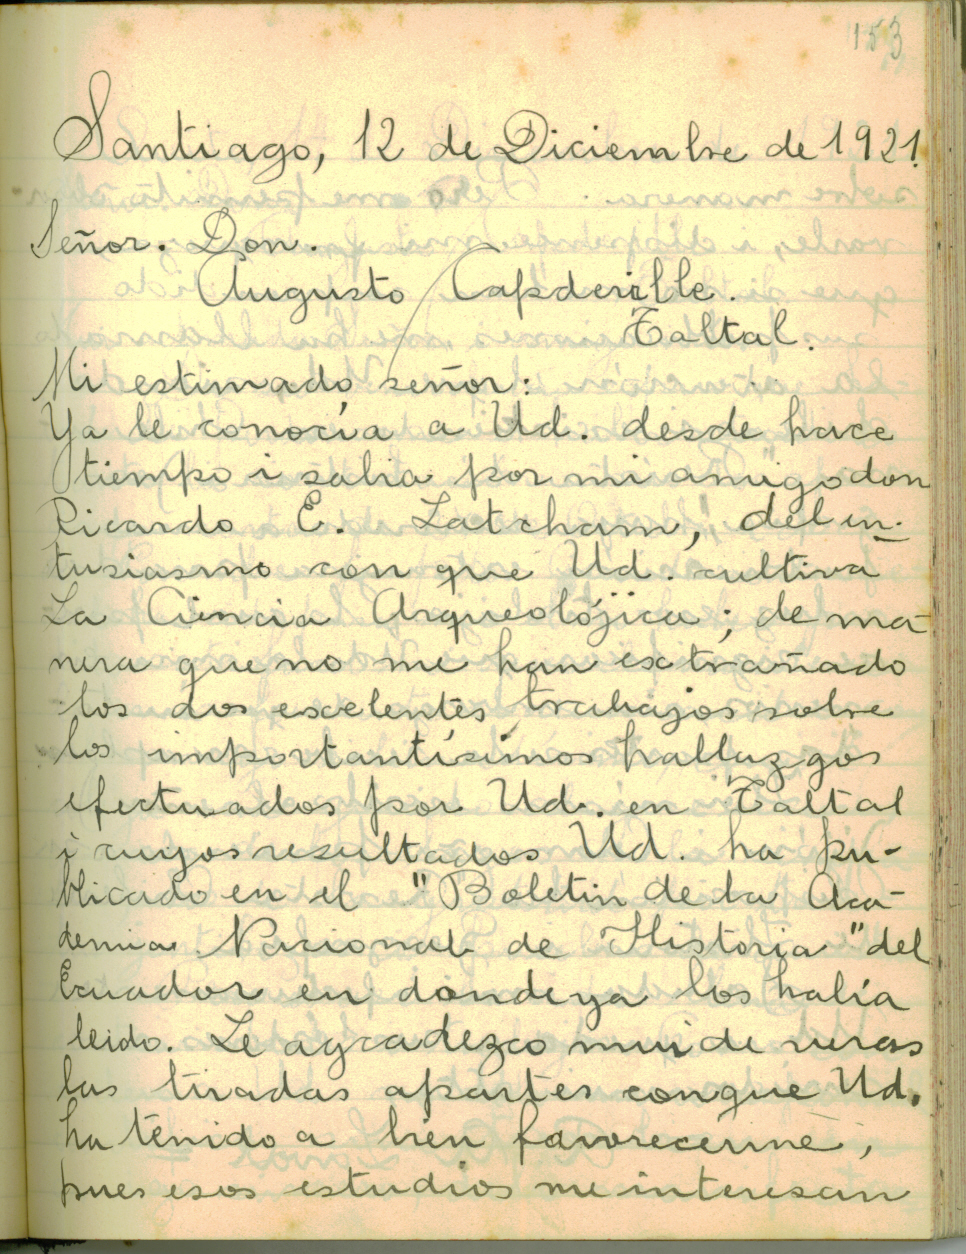 153
Santiago, 12 de Diciembre de 1921.
Señor. Don.
Augusto Capdeville.
Taltal.
Mi estimado señor:
Ya le conocía a Ud. desde hace
tiempo i sabia por mi amigo don
Ricardo E. Latcham, del en-
tusiasmo con que Ud. cultiva
La Ciencia Arqueolójica; de ma-
nera que no me han extrañado
los dos escelentes trabajos sobre
los importantísimos hallazgos
efectuados por Ud. en Taltal
i cuyos resultados Ud. ha pu-
blicado en el "Boletin de la Aca-
demia Nacional de Historia" del
Ecuador en donde ya los habia
leido. Le agradezco mui de veras
las tiradas apartes con que Ud.
ha tenido a bien favorecerme,
pues esos estudios me interesan